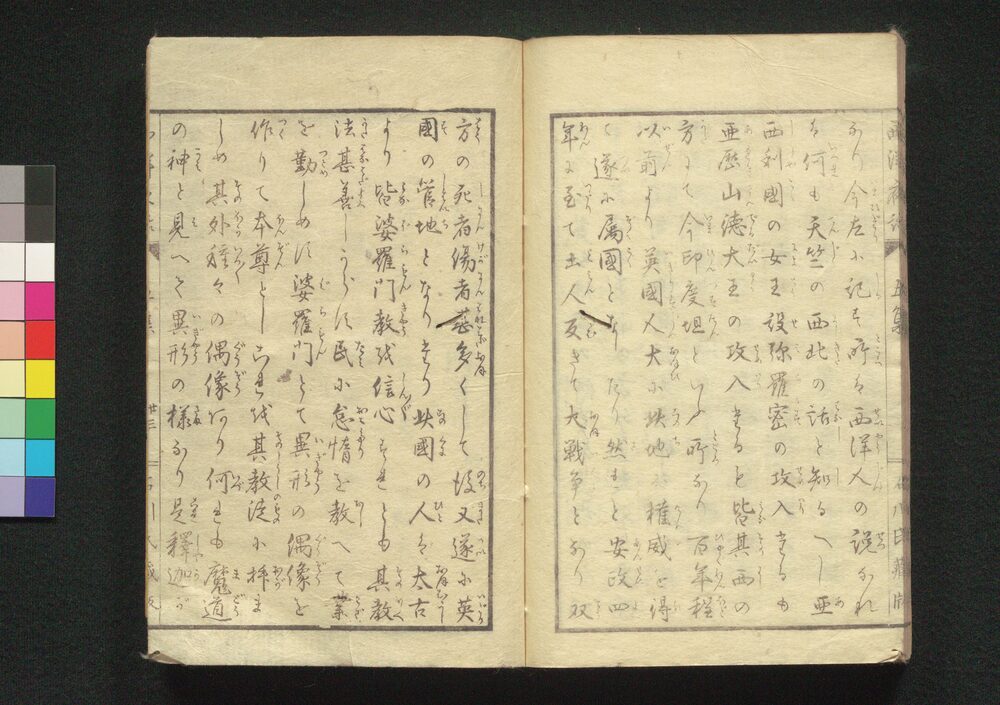 なり今左に記す所は西洋人の説なれ
は何も天竺の西北の話と知るへし亜
西利國の女王設弥羅密の攻入たるも
亜歴山徳大王の攻入たると皆其西の
方にて今印度坦といふ所なり百年程
以前より英國人大に此地に権威を得
て遂に属國となしたり然るに安政四
年に至て土人反きて大戦争となり双
方の死者傷者甚多くして後又遂に英
國の管地となりたり此國の人は太古
より皆婆羅門教を信心すれとも其教
法甚善からす民に怠惰を教へて業
を勤しめす婆羅門とて異形の偶像を
作りて本尊としこれを其教徒に拝ま
しめ其外種々の偶像あり何れも魔道
の神と見へて異形の様なり是釋迦が